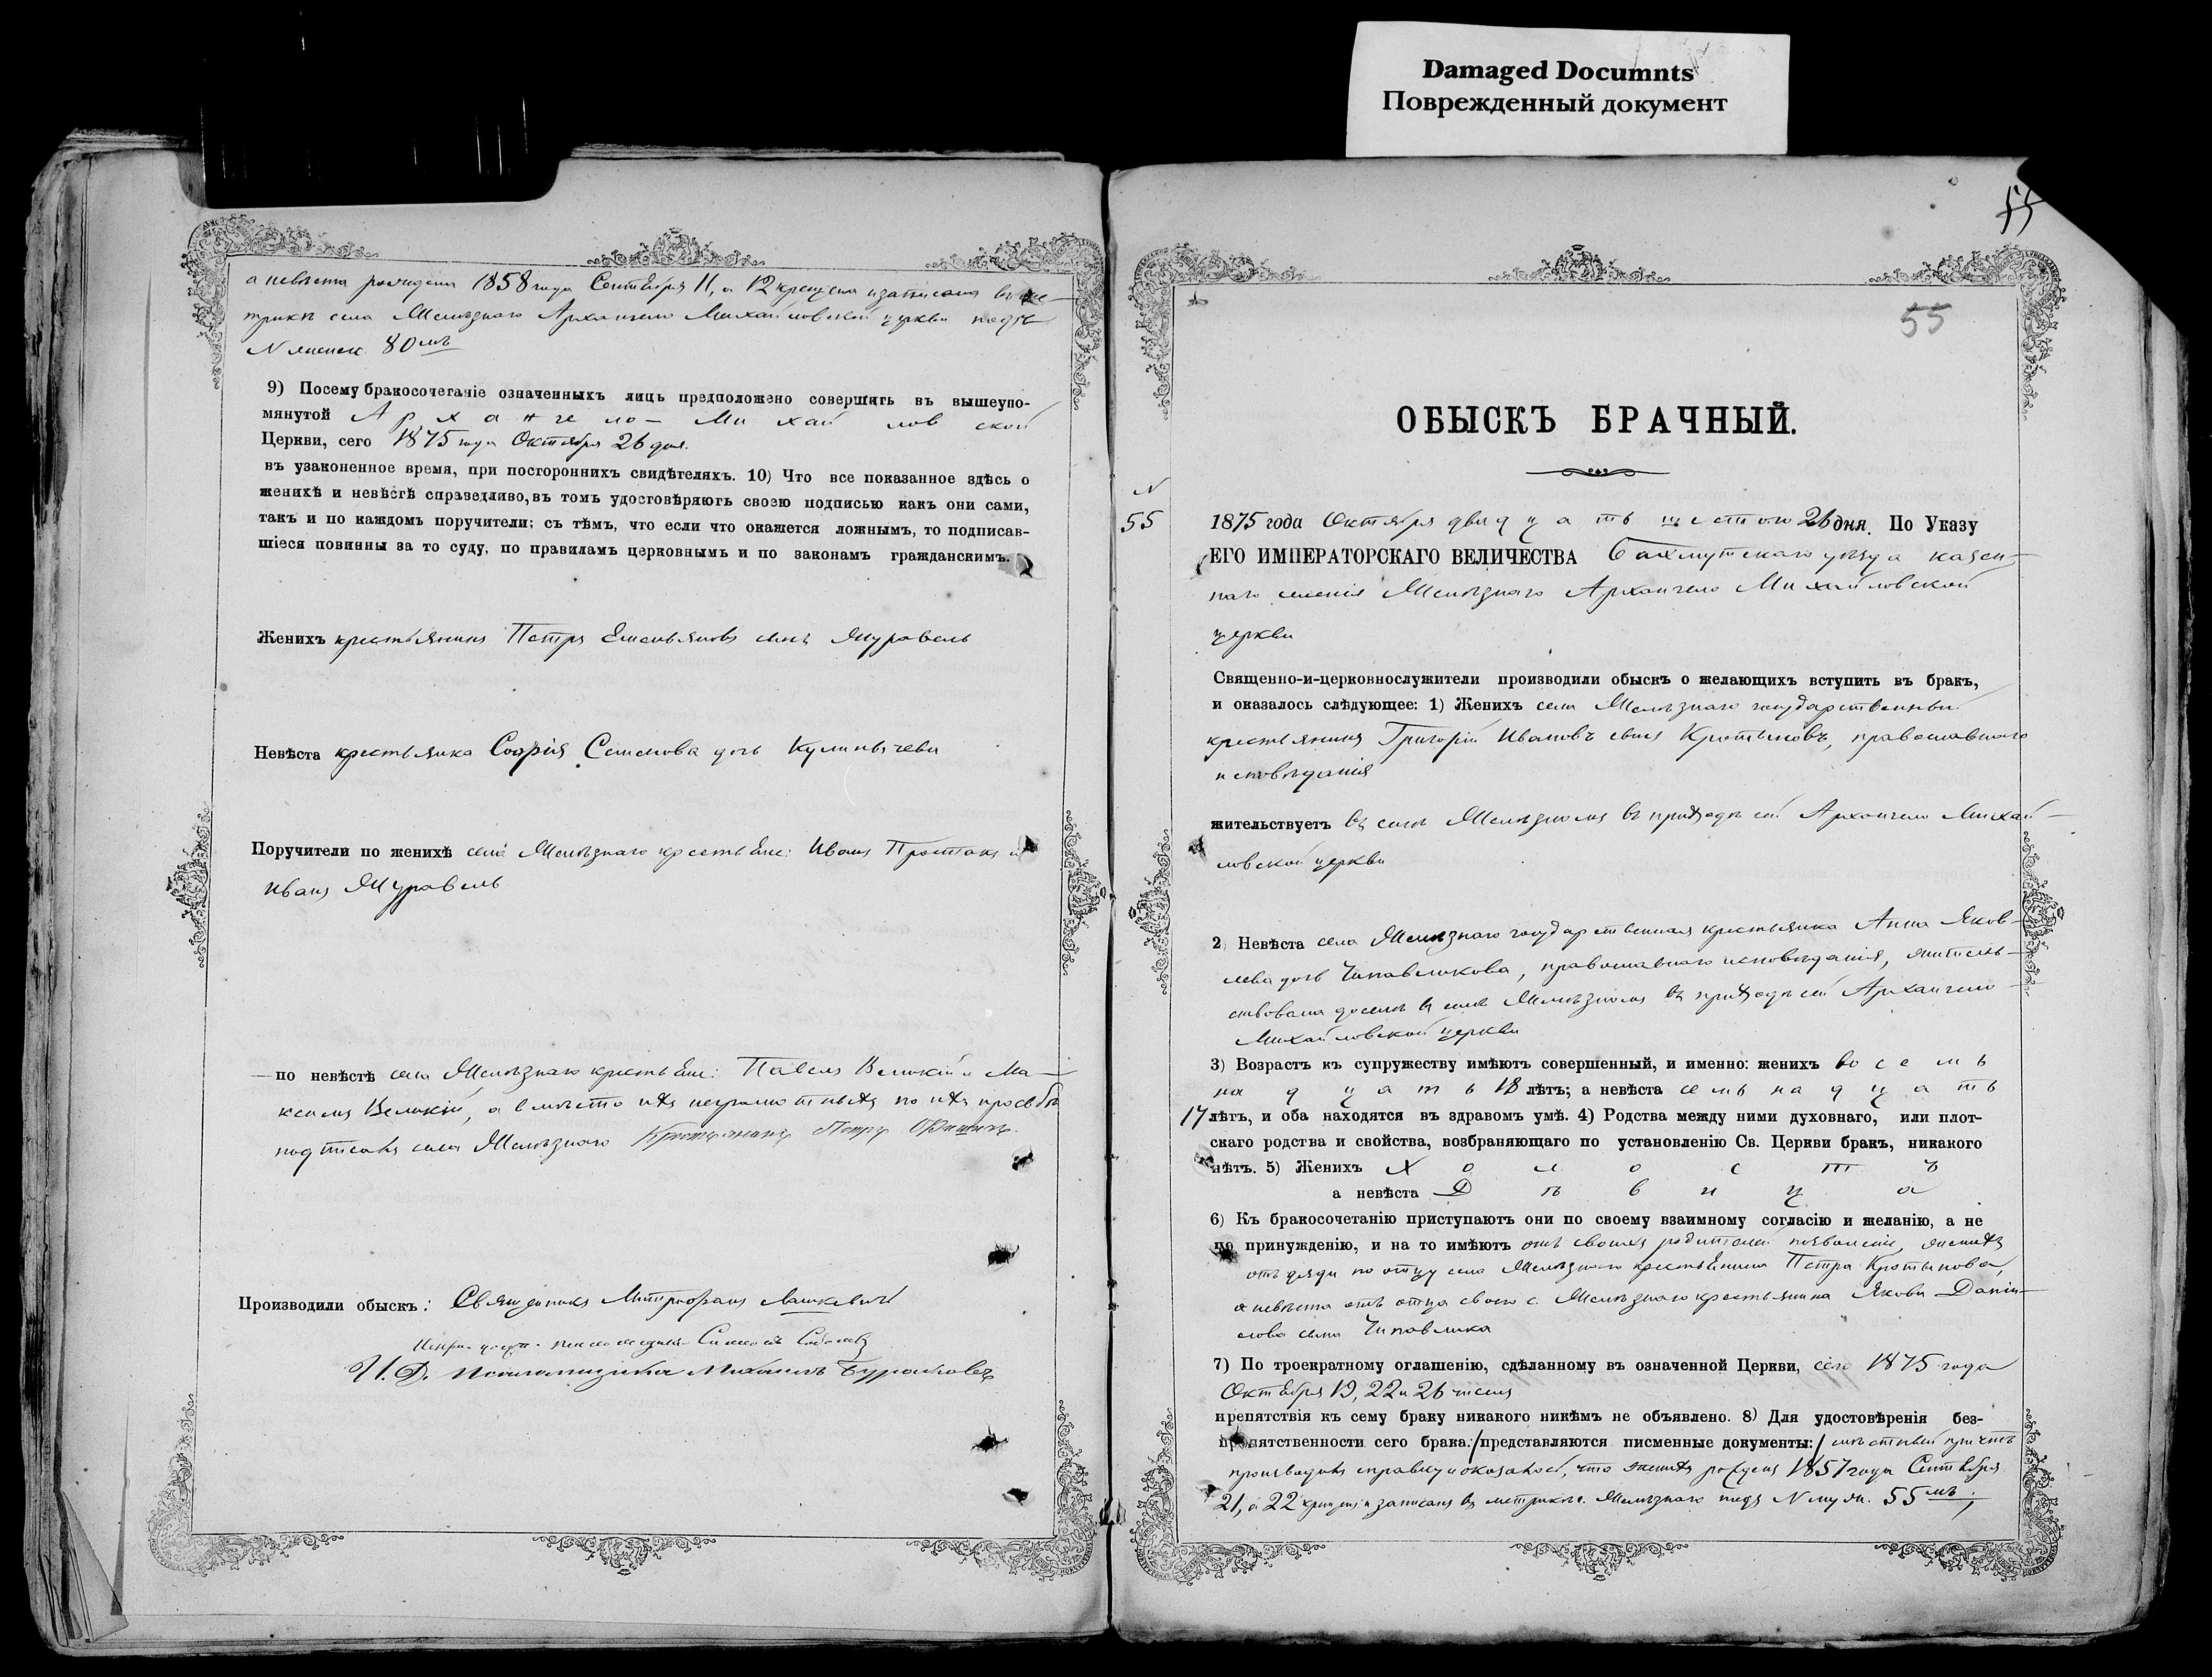 Damaged Documnts
Поврежденный документ
а невѣста рождена 1858 года Сентября 11, а 12 крещена и записана въ ме-
трикѣ села Желѣзнаго Архангело Михайловской церкви подъ
N женск. 80мъ
9) Посему бракосочетаніе означенныхъ лицъ предположено совершить въ вышеупо-
мянутой Архангело-Михайловской
Церкви, сего 1875 года Октября 26 дня.
въ узаконенное время, при постороннихъ свидѣтеляхъ. 10) Что все показанное здѣсь о
женихѣ и невѣстѣ справедливо, въ томъ удостовѣряютъ своею подписью какъ они сами,
такъ и по каждомъ поручители; съ тѣмъ, что если что окажется ложнымъ, то подписав-
шіеся повинны за то суду, по правиламъ церковнымъ и по законамъ гражданскимъ.
Женихъ крестьянинъ Петръ Емельяновъ сынъ Журавель
Невѣста крестьянка Софія Семенова дочь
Поручители по женихѣ села Желѣзнаго крестьяне: Иванъ Простакъ и
Иванъ Журавель
по невѣстѣ села Желѣзнаго крестьяне: Павелъ Великій и Ма-
ксимъ Великій, а вмѣсто ихъ неграмотныхъ по ихъ просьбѣ
подписалъ села Желѣзнаго Крестьянинъ Петръ
Производили обыскъ: Священникъ Митрофанъ Лашкевичъ
И. Д. Псаломщика Михаилъ
55
55
ОБЫСКЪ БРАЧНЫЙ.
N
55
1875 года Октября двадцать шестого 26 дня. По Указу
ЕГО ИМПЕРАТОРСКАГО ВЕЛИЧЕСТВА Бахмутскаго уѣзда казен-
наго селенія Желѣзнаго Архангело Михайловской
церкви
Священно-и-церковнослужители производили обыскъ о желающихъ вступить въ бракъ,
и оказалось слѣдующее: 1) Женихъ села Желѣзнаго государственный
крестьянинъ Григорій Ивановъ сынъ Кротыновъ, православнаго
исповѣданія
жительствуетъ въ селѣ Желѣзномъ въ приходѣ сей Архангело Михай-
ловской церкви
2) Невѣста села Желѣзнаго государственная крестьянка Анна Яков-
лева дочь Чипавликова, православнаго исповѣданія, житель-
ствовала доселѣ въ селѣ Желѣзномъ въ приходѣ сей Архангело
Михайловской церкви
3) Возрастъ къ супружеству имѣютъ совершенный, и именно: женихъ восемь
надцать 18 лѣтъ; а невѣста семьнадцать
17 лѣтъ, и оба находятся въ здравомъ умѣ. 4) Родства между ними духовнаго, или плот-
скаго родства и свойства, возбраняющаго по установленію Св. Церкви бракъ, никакого
нѣтъ. 5) Женихъ Холостъ
а невѣста Дѣвица
6) Къ бракосочетанію приступаютъ они по своему взаимному согласію и желанію, а не
по принужденію, и на то имѣютъ отъ своихъ родителей позволеніе, женихъ
отъ дяди по отцу села Желѣзнаго крестьянина Петра Кротынова,
а невѣста отъ отца своего с. Желѣзнаго крестьянина Якова Даніи-
лова сына Чипавлика
7) По троекратному оглашенію, сдѣланному въ означенной Церкви, сего 1875 года
Октября 19, 22 и 26 чиселъ
препятствія къ сему браку никакого никѣмъ не объявлено. 8) Для удостовѣренія без-
препятственности сего брака: / представляются писменные документы: / мѣстный причтъ
производилъ справку и оказалось, что женихъ рожденъ 1857 года Сентября
21, а 22 крещенъ и записанъ въ метрикѣ с. Желѣзнаго подъ N муж. 55мъ;